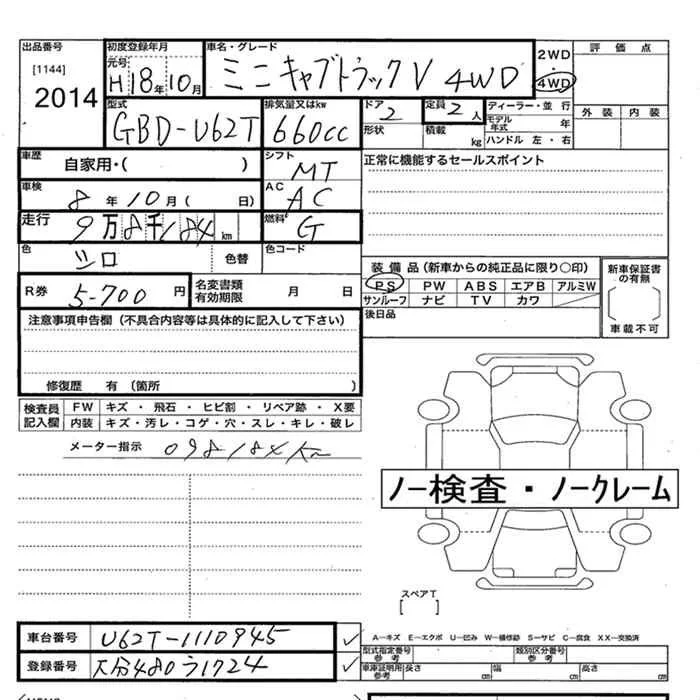 出品番号 初度登録年月 車名・グレード 評価点
[1144] 元号 H18年10月 ミニキャブトラックV 4WD 2WD・4WD
2014
型式 排気量又はkw ドア 定員 ディーラー・並行 外装 内装
GBD-U62T 660cc 2 2人 モデル年式 年
形状 積載 kg ハンドル 左・右
車歴 自家用・( ) シフト MT 正常に機能するセールスポイント
車検 8年10月( 日) AC AC
走行 9万8千184km 燃料 G
色 シロ 色替 色コード
装備品(新車からの純正品に限り○印) 新車保証書の有無
R券 5-700円 名変書類有効期限 月 日 PS PW ABS エアB アルミW
サンルーフ ナビ TV カワ
注意事項申告欄(不具合内容等は具体的に記入して下さい) 後日品 車載不可
修復歴 有(箇所 )
検査員記入欄 FW キズ・飛石・ヒビ割・リペア跡・X要
内装 キズ・汚レ・コゲ・穴・スレ・キレ・破レ
メーター指示 098184km
ノー検査・ノークレーム
スペアT
[ ]
車台番号 U62T-1110945 ✓ A―キズ E―エクボ U―凹み W―補修跡 S―サビ C―腐食 XX―交換済
型式指定番号 参考 類別区分番号 参考
登録番号 大分480う1724 ✓ 車庫証明用参考 長さ cm 幅 cm 高さ cm